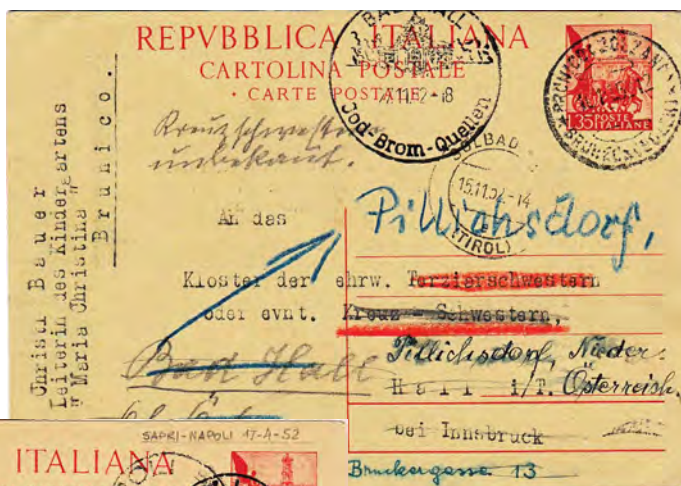 REPVBBLICA ITALIANA
CARTOLINA POSTALE
• CARTE POSTALE •
BAD HALL
11.52-18
Jod-Brom-Quellen
L.35 POSTE ITALIANE
SOLBAD
15.11.52-14
(TIROL)
Kreuzschwestern
unbekannt.
Christl Bauer
Leiterin des Kindergartens
"Maria Christina"
Brunico.
An das
Pillichsdorf,
Kloster der ehrw. Terzierschwestern
oder evnt. Kreuz - Schwestern,
Bad Hall
Pillichsdorf, Nieder-
Hall i/T. Österreich.
bei Innsbruck
Bruckergasse 13
SAPRI-NAPOLI 17-4-52
ITALIANA